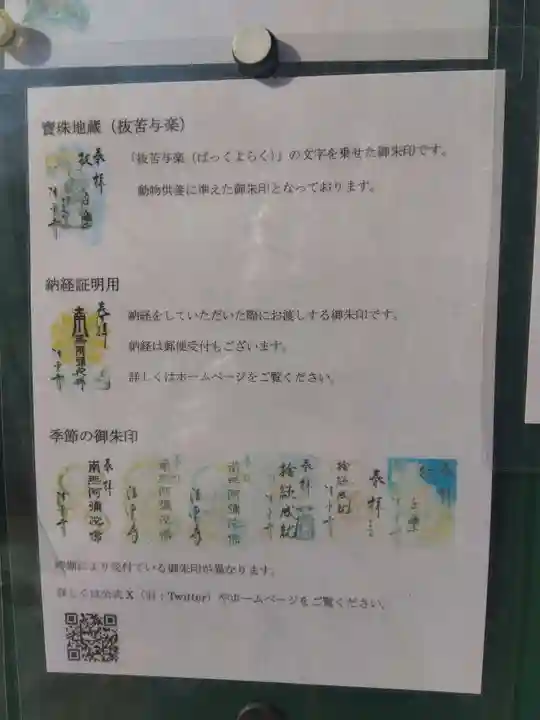 寶珠地蔵（抜苦与楽）
「抜苦与楽（ばっくよらく）」の文字を乗せた御朱印です。
動物供養に準えた御朱印となっております。
奉拝
納経証明用
納経をしていただいた際にお渡しする御朱印です。
納経は郵便受付もございます。
詳しくはホームページをご覧ください。
奉拝
南無阿彌陀佛
季節の御朱印
奉拝
南無阿彌陀佛
南無阿彌陀佛
南無阿彌陀佛
奉拝
奉拝
時期により受付ている御朱印が異なります。
詳しくは公式X（旧：Twitter）やホームページをご覧ください。